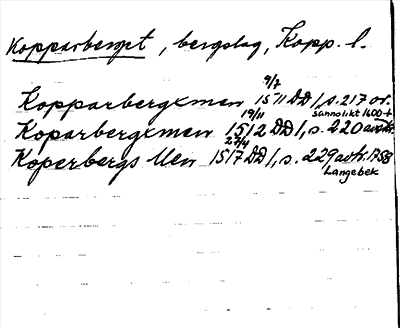 Kopparberget, bergslag, Kopp. l.
Kopparbergxmen 9/7 1511 DD 1, s. 217 or.
sannolikt 1600-t
Koparbergxmen 19/11 1512 DD 1, s. 220 avskr.
Koperbergs Men 27/4 1517 DD 1, s. 229 avtr. 1758
Langebek